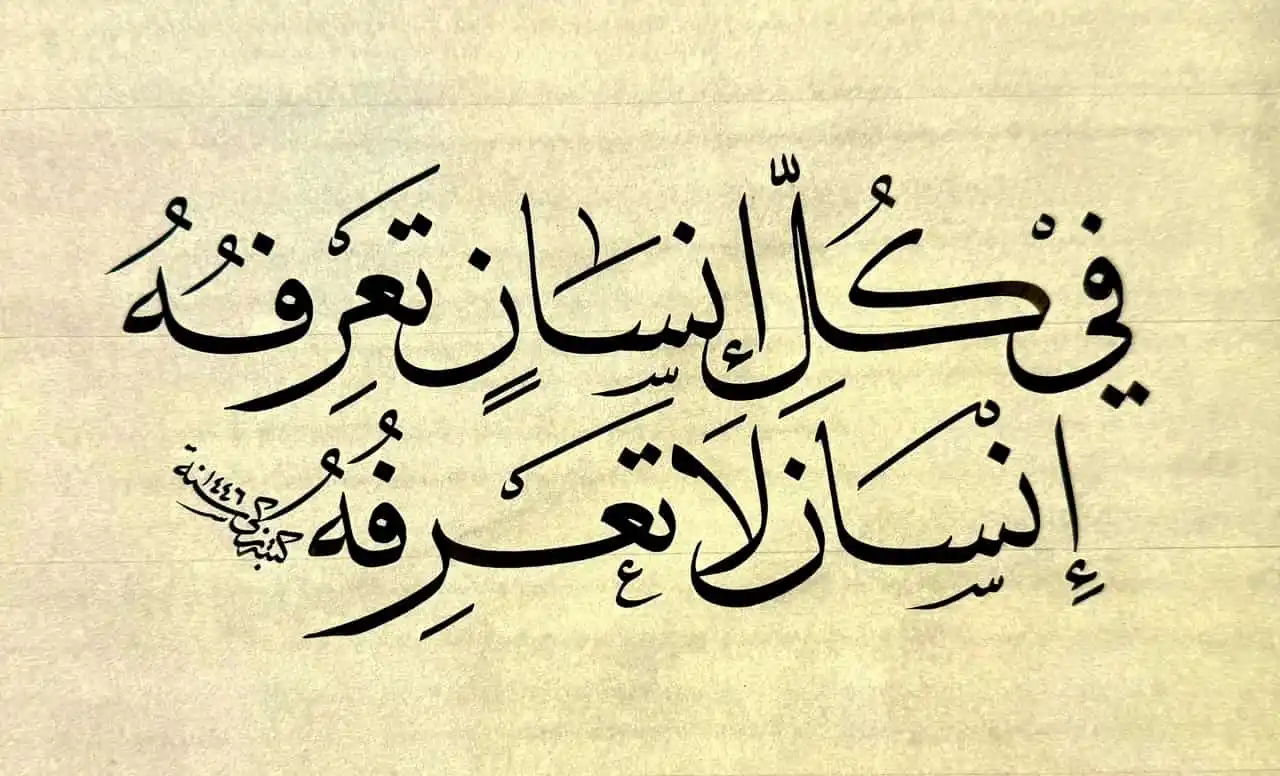 فِيْ كُلِّ إِنسَانٍ تَعْرِفُهُ
إِنْسَان لَا تَعْرِفُهُ
سنة ١٤٤٦